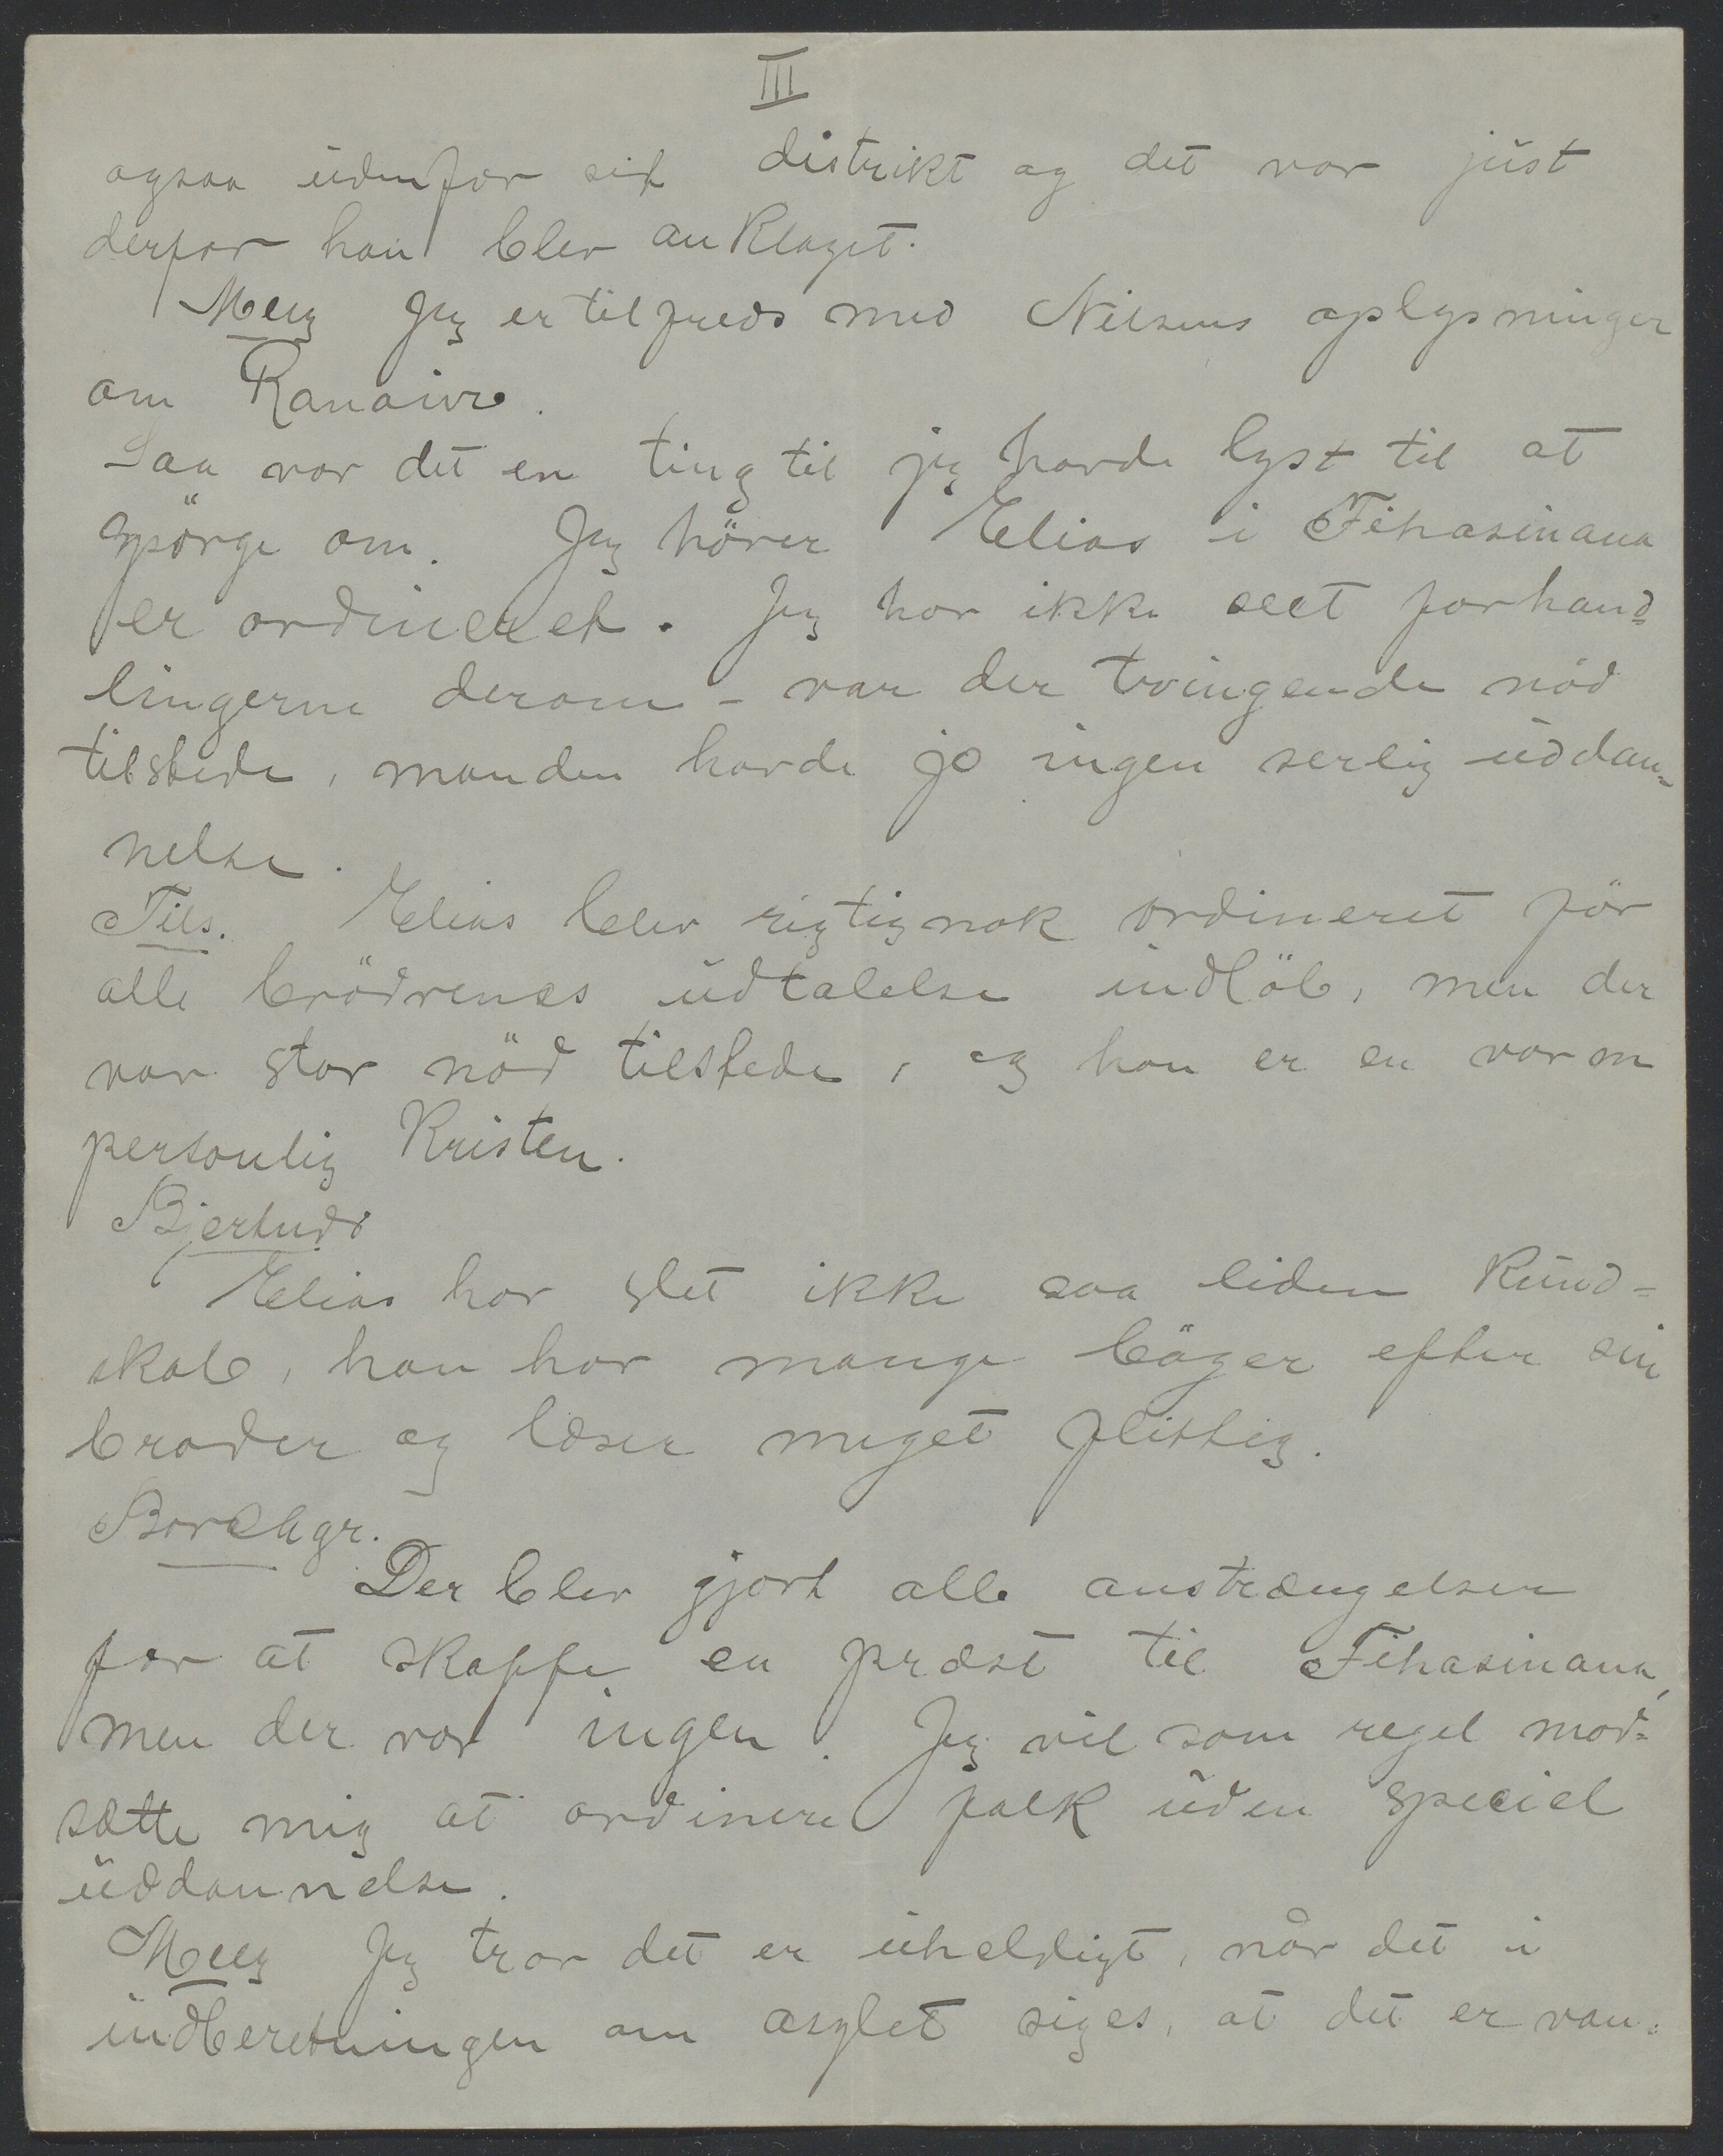 III
ogsaa udenfor sit distrikt og det var just
derfor han blev anklaget.
Meeg Jeg er tilfreds med Nilsens oplysninger
om Ranaivo.
Saa var det en ting til jeg havde lyst til at
spörge om. Jeg hörer Elias i Fihasinana
er ordineret. Jeg har ikke seet forhand=
lingerne derom - var der tvingende nöd
tilstede, manden havde jo ingen serlig uddan=
nelse.
Tils. Elias blev rigtignok ordineret för
alle brödrenes udtalelse indlöb, men der
var stor nöd tilstede, og han er en varm
personlig Kristen.
Bjertnæs
Elias har slet ikke saa liden Kund-
skab, han har mange böger efter sin
broder og læser meget flittig.
Borchgr.
Der blev gjort alle anstrængelser
for at skaffe en præst til Fihasinana,
men der var ingen. Jeg vil som regel mod=
sætte mig at ordinere folk uden speciel
uddannelse.
Meeg Jeg tror det er uheldigt, når det i
indberetningen om asylet siges, at det er van=